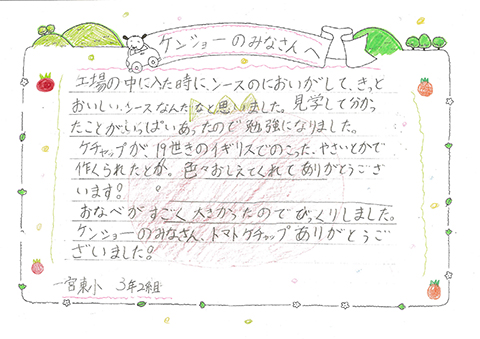 ケンショーのみなさんへ
工場の中に入た時に、ソースのにおいがして、きっと
おいしい、ソースなんだなと思いました。見学して分かっ
たことがいっぱいあったので勉強になりました。
ケチャップが、19世きのイギリスでのこった、やさいとかで
作くられたとか。色々おしえてくれてありがとうござ
います!
おなべがすごく大きかったのでびっくりしました。
ケンショーのみなさん、トマトケチャップありがとうご
ざいました。
一宮東小 3年2組